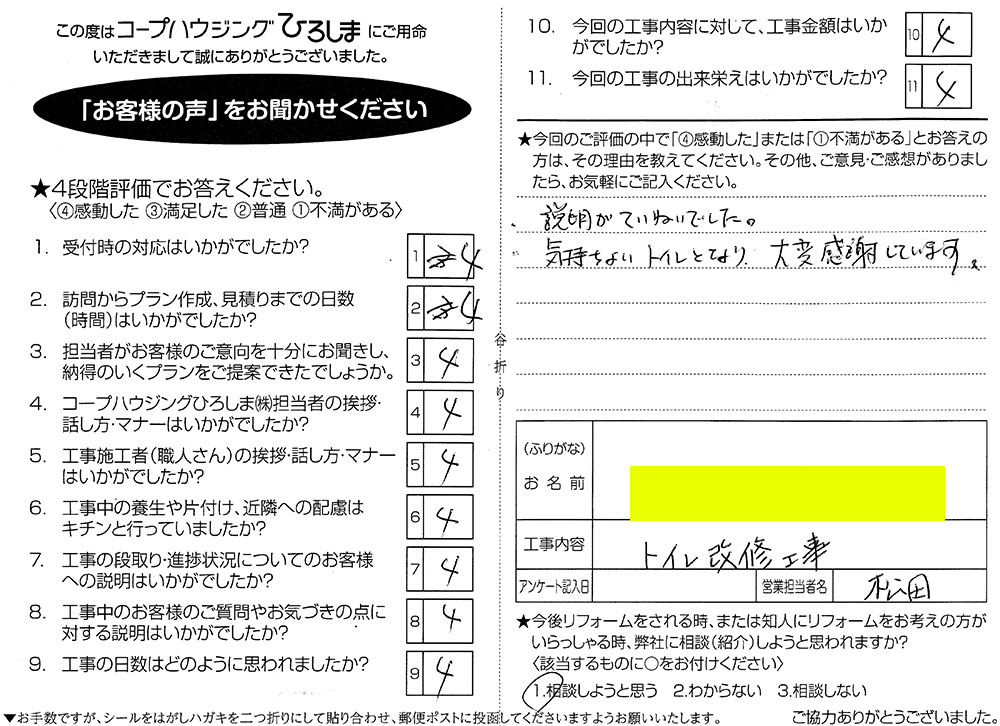 この度はコープハウジングひろしまにご用命
いただきまして誠にありがとうございました。
「お客様の声」をお聞かせください
★4段階評価でお答えください。
〈④感動した ③満足した ②普通 ①不満がある〉
1. 受付時の対応はいかがでしたか?
1 4
2. 訪問からプラン作成、見積りまでの日数
(時間)はいかがでしたか?
2 4
3. 担当者がお客様のご意向を十分にお聞きし、
納得のいくプランをご提案できたでしょうか。
3 4
4. コープハウジングひろしま㈱担当者の挨拶・
話し方・マナーはいかがでしたか?
4 4
5. 工事施工者(職人さん)の挨拶・話し方・マナー
はいかがでしたか?
5 4
6. 工事中の養生や片付け、近隣への配慮は
キチンと行っていましたか?
6 4
7. 工事の段取り・進捗状況についてのお客様
への説明はいかがでしたか?
7 4
8. 工事中のお客様のご質問やお気づきの点に
対する説明はいかがでしたか?
8 4
9. 工事の日数はどのように思われましたか?
9 4
▼お手数ですが、シールをはがしハガキを二つ折りにして貼り合わせ、郵便ポストに投函してくださいますようお願いいたします。
谷折り
10. 今回の工事内容に対して、工事金額はいか
がでしたか?
10 4
11. 今回の工事の出来栄えはいかがでしたか?
11 4
★今回のご評価の中で「④感動した」または「①不満がある」とお答えの
方は、その理由を教えてください。その他、ご意見・ご感想がありまし
たら、お気軽にご記入ください。
、説明がていねいでした。
気持ちよいトイレとなり、大変感謝しています。
(ふりがな)
お名前
工事内容 トイレ改修工事
アンケート記入日 営業担当者名 松田
★今後リフォームをされる時、または知人にリフォームをお考えの方が
いらっしゃる時、弊社に相談(紹介)しようと思われますか?
〈該当するものに○をお付けください〉
1.相談しようと思う 2.わからない 3.相談しない
ご協力ありがとうございました。